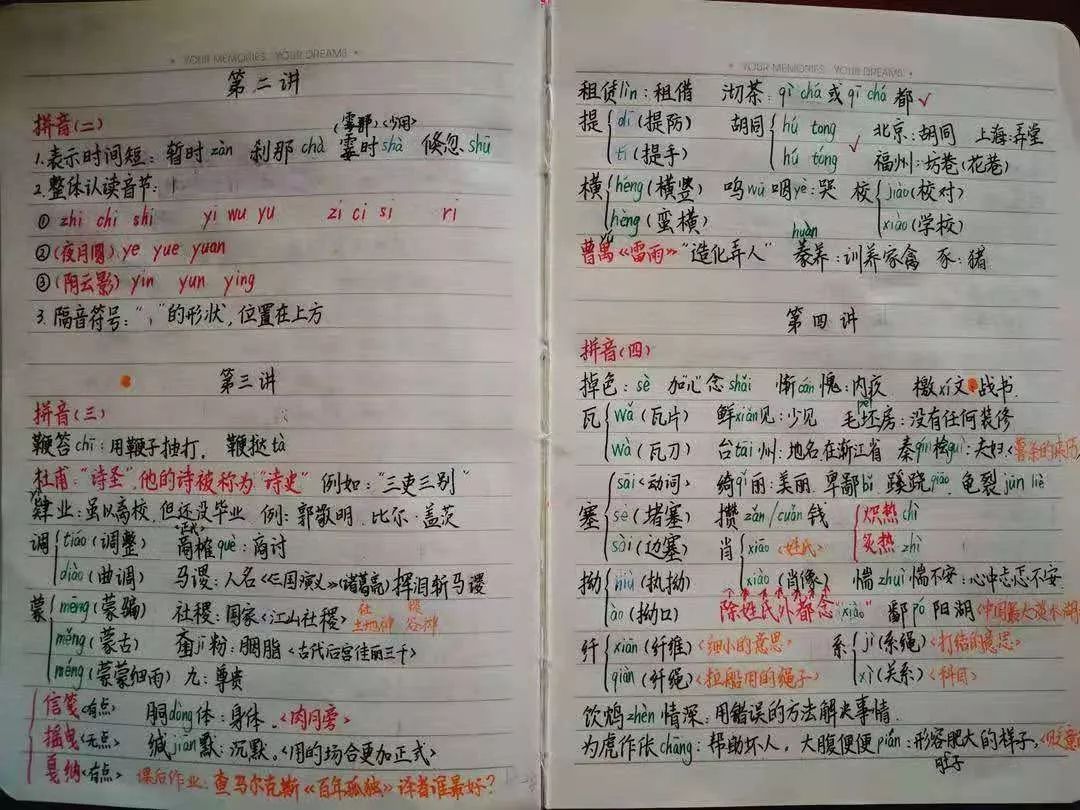 YOUR MEMORIES YOUR DREAMS
第二讲
拼音(二)
(霎那)〈少用〉
1.表示时间短：暂时zàn 刹那chà 霎时shà 倏忽shū
2.整体认读音节：
① zhi chi shi yi wu yu zi ci si ri
②(夜月圆) ye yue yuan
③(阴云影) yin yun ying
3.隔音符号："'"的形状，位置在上方
第三讲
拼音(三)
鞭笞chī：用鞭子抽打，鞭挞tà
杜甫："诗圣"，他的诗被称为"诗史" 例如："三吏三别"
肄业：虽以离校，但还没毕业. 例：郭敬明，比尔·盖茨
调 tiáo(调整) 商榷què：商讨
diào(曲调) 马谡：人名《三国演义》(诸葛亮)挥泪斩马谡
蒙 mēng(蒙骗) 社稷：国家〈江山社稷〉 社 土地神 稷 谷神
měng(蒙古) jì粉：胭脂〈古代后宫佳丽三千〉
méng(蒙蒙细雨) 九：尊贵
信笺〈有点〉 胴dòng体：身体.〈肉月旁〉
摇曳〈无点〉 缄jiān默：沉默.〈用的场合更加正式〉
戛纳〈有点〉 课后作业：查马尔克斯《百年孤独》译者谁最好？
YOUR MEMORIES YOUR DREAMS
租赁lìn：租借 沏茶：qì chá或qī chá 都✓
提 dī(提防) 胡同 hú tong 北京：胡同 上海：弄堂
tí(提手) hú tòng ✓ 福州：坊巷(花巷)
横 héng(横竖) 呜wū咽yè：哭 校 jiào(校对)
hèng(蛮横) xiào(学校)
yú huàn
曹禺《雷雨》"造化弄人" 豢养：训养家禽 豕：猪
第四讲
拼音(四)
掉色：sè 加"儿"念shǎi 惭cán愧：内疚 檄xí文：战书.
瓦 wǎ(瓦片) 鲜xiǎn见：少见 毛坯pī房：没有任何装修
wà(瓦刀) 台tāi州：地名在浙江省 秦qín桧guì：夫妇
塞 sāi〈动词〉 绮qǐ丽：美丽. 卑鄙bǐ. 蹊跷qiāo. 龟裂jūn liè
sè(堵塞) 攒zǎn/cuán钱 炽热chì
sài(边塞) 肖 xiāo〈姓氏〉 炙热zhì
拗 niù(执拗) xiào(肖像) 惴zhuì惴不安：心中忐忑不安
ào(拗口) 除姓氏外都念"xiào" 鄱pó阳湖〈中国最大淡水湖
纤 xiān(纤维)〈细小的意思〉 系 jì(系绳)〈打结的意思〉
qiàn(纤绳)〈拉船用的绳子〉 xì(关系)〈科目〉
饮鸩zhèn情深：用错误的方法解决事情.
为虎作伥chāng：帮助坏人，大腹便便pián：形容肥大的样子.
肚子